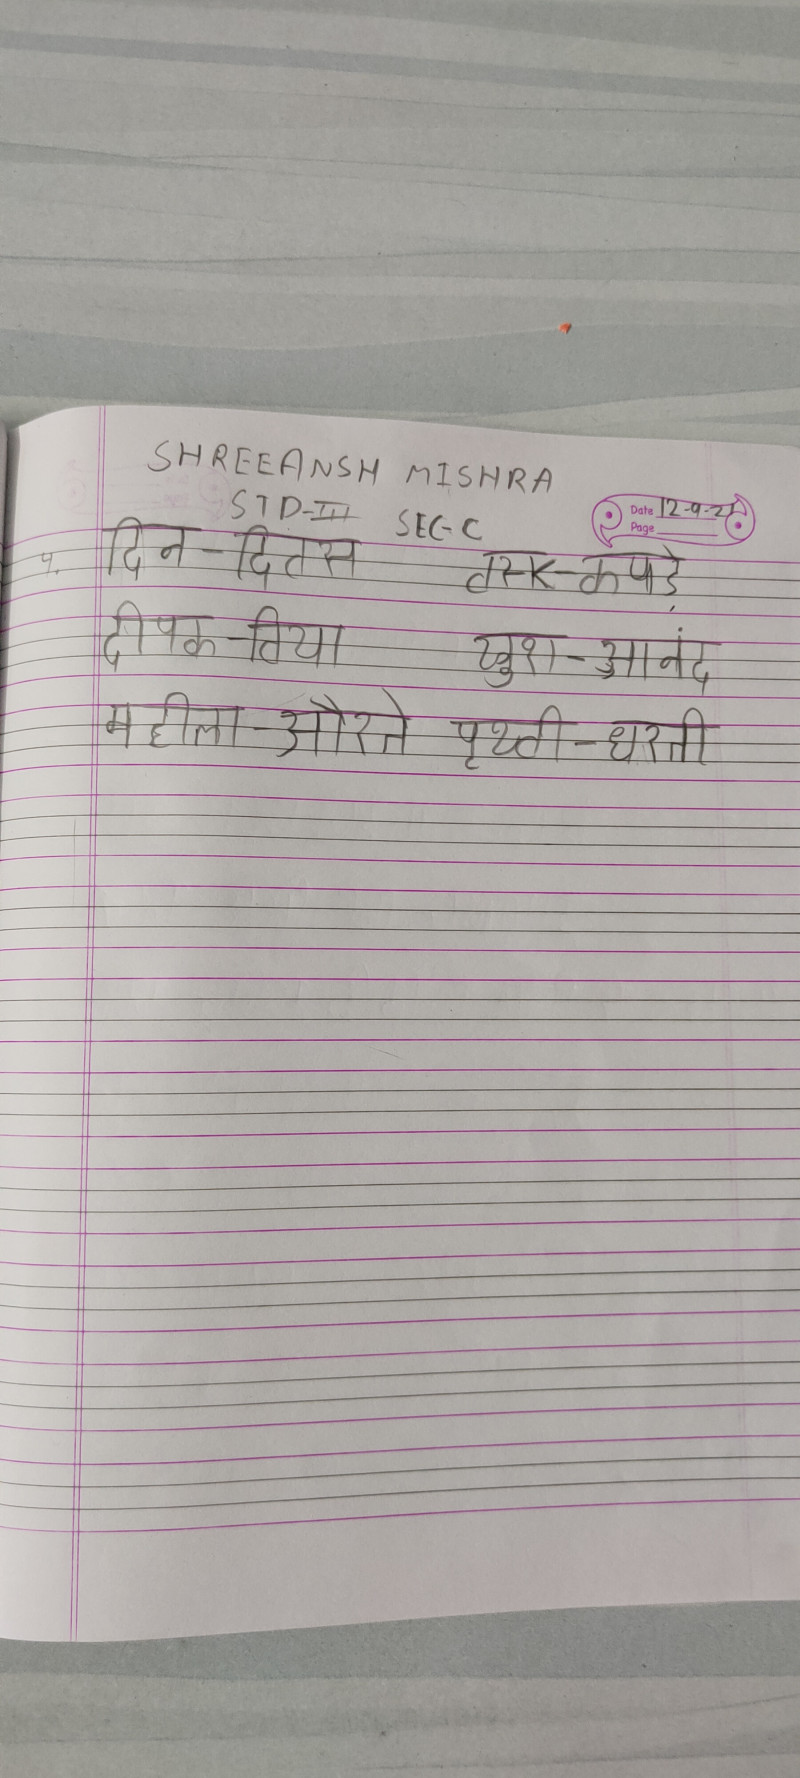 SHREEANSH MISHRA
STD-III SEC-C
Date 12-9-21
Page
4. दिन-दिवस वस्क-कपड़े
दीपक-दिया खुश-आनंद
महीला-औरते पृथ्वी-धरती